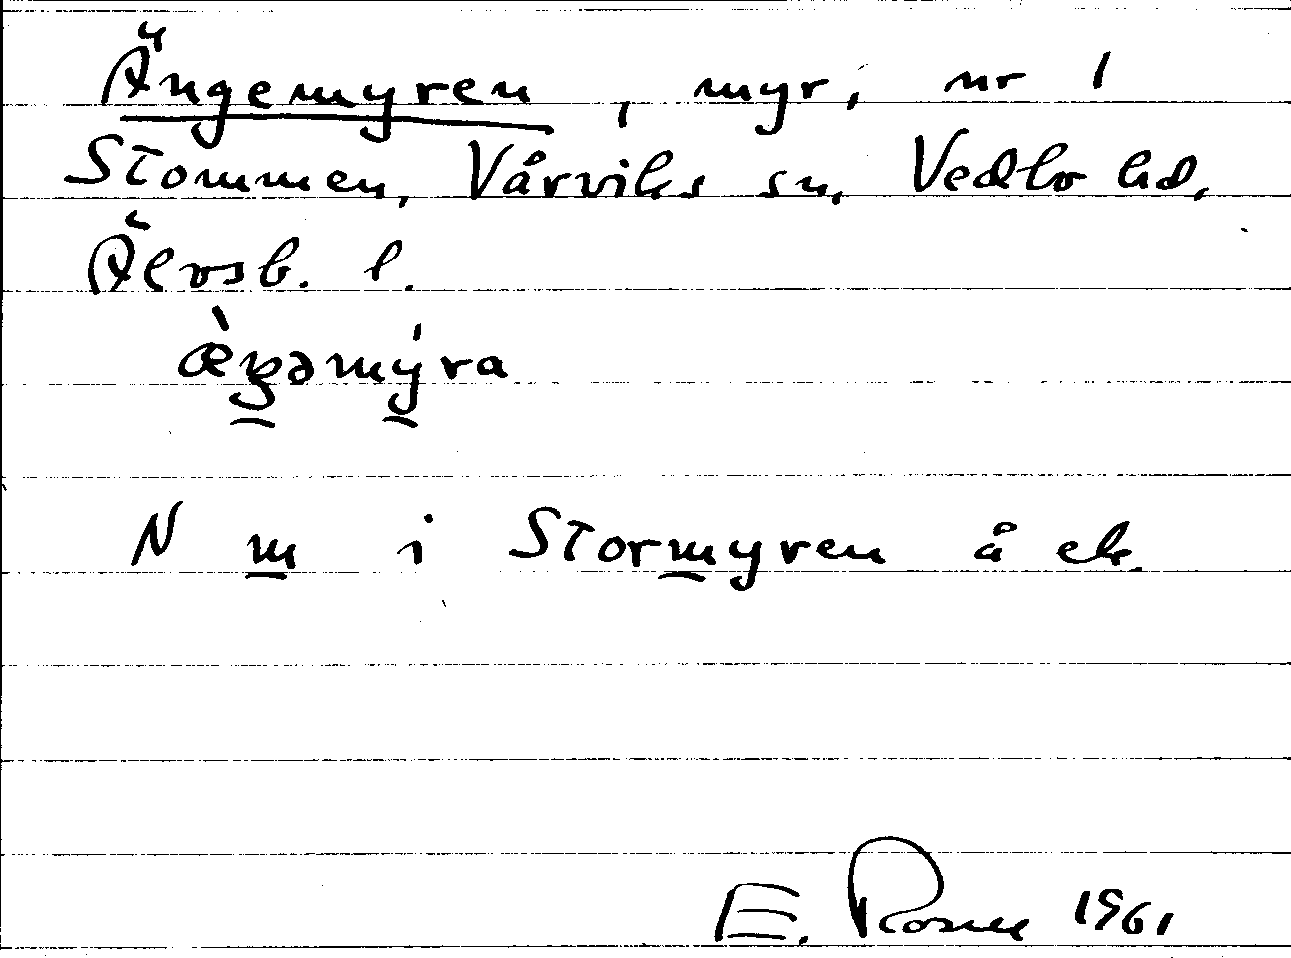 Ängemyren, myr, nr 1
Stommen, Vårviks sn, Vedbo hd,
Älvsb. l.
æ̀ŋəmýra
N m i Stormyren å ek.
E. Rosne 1961